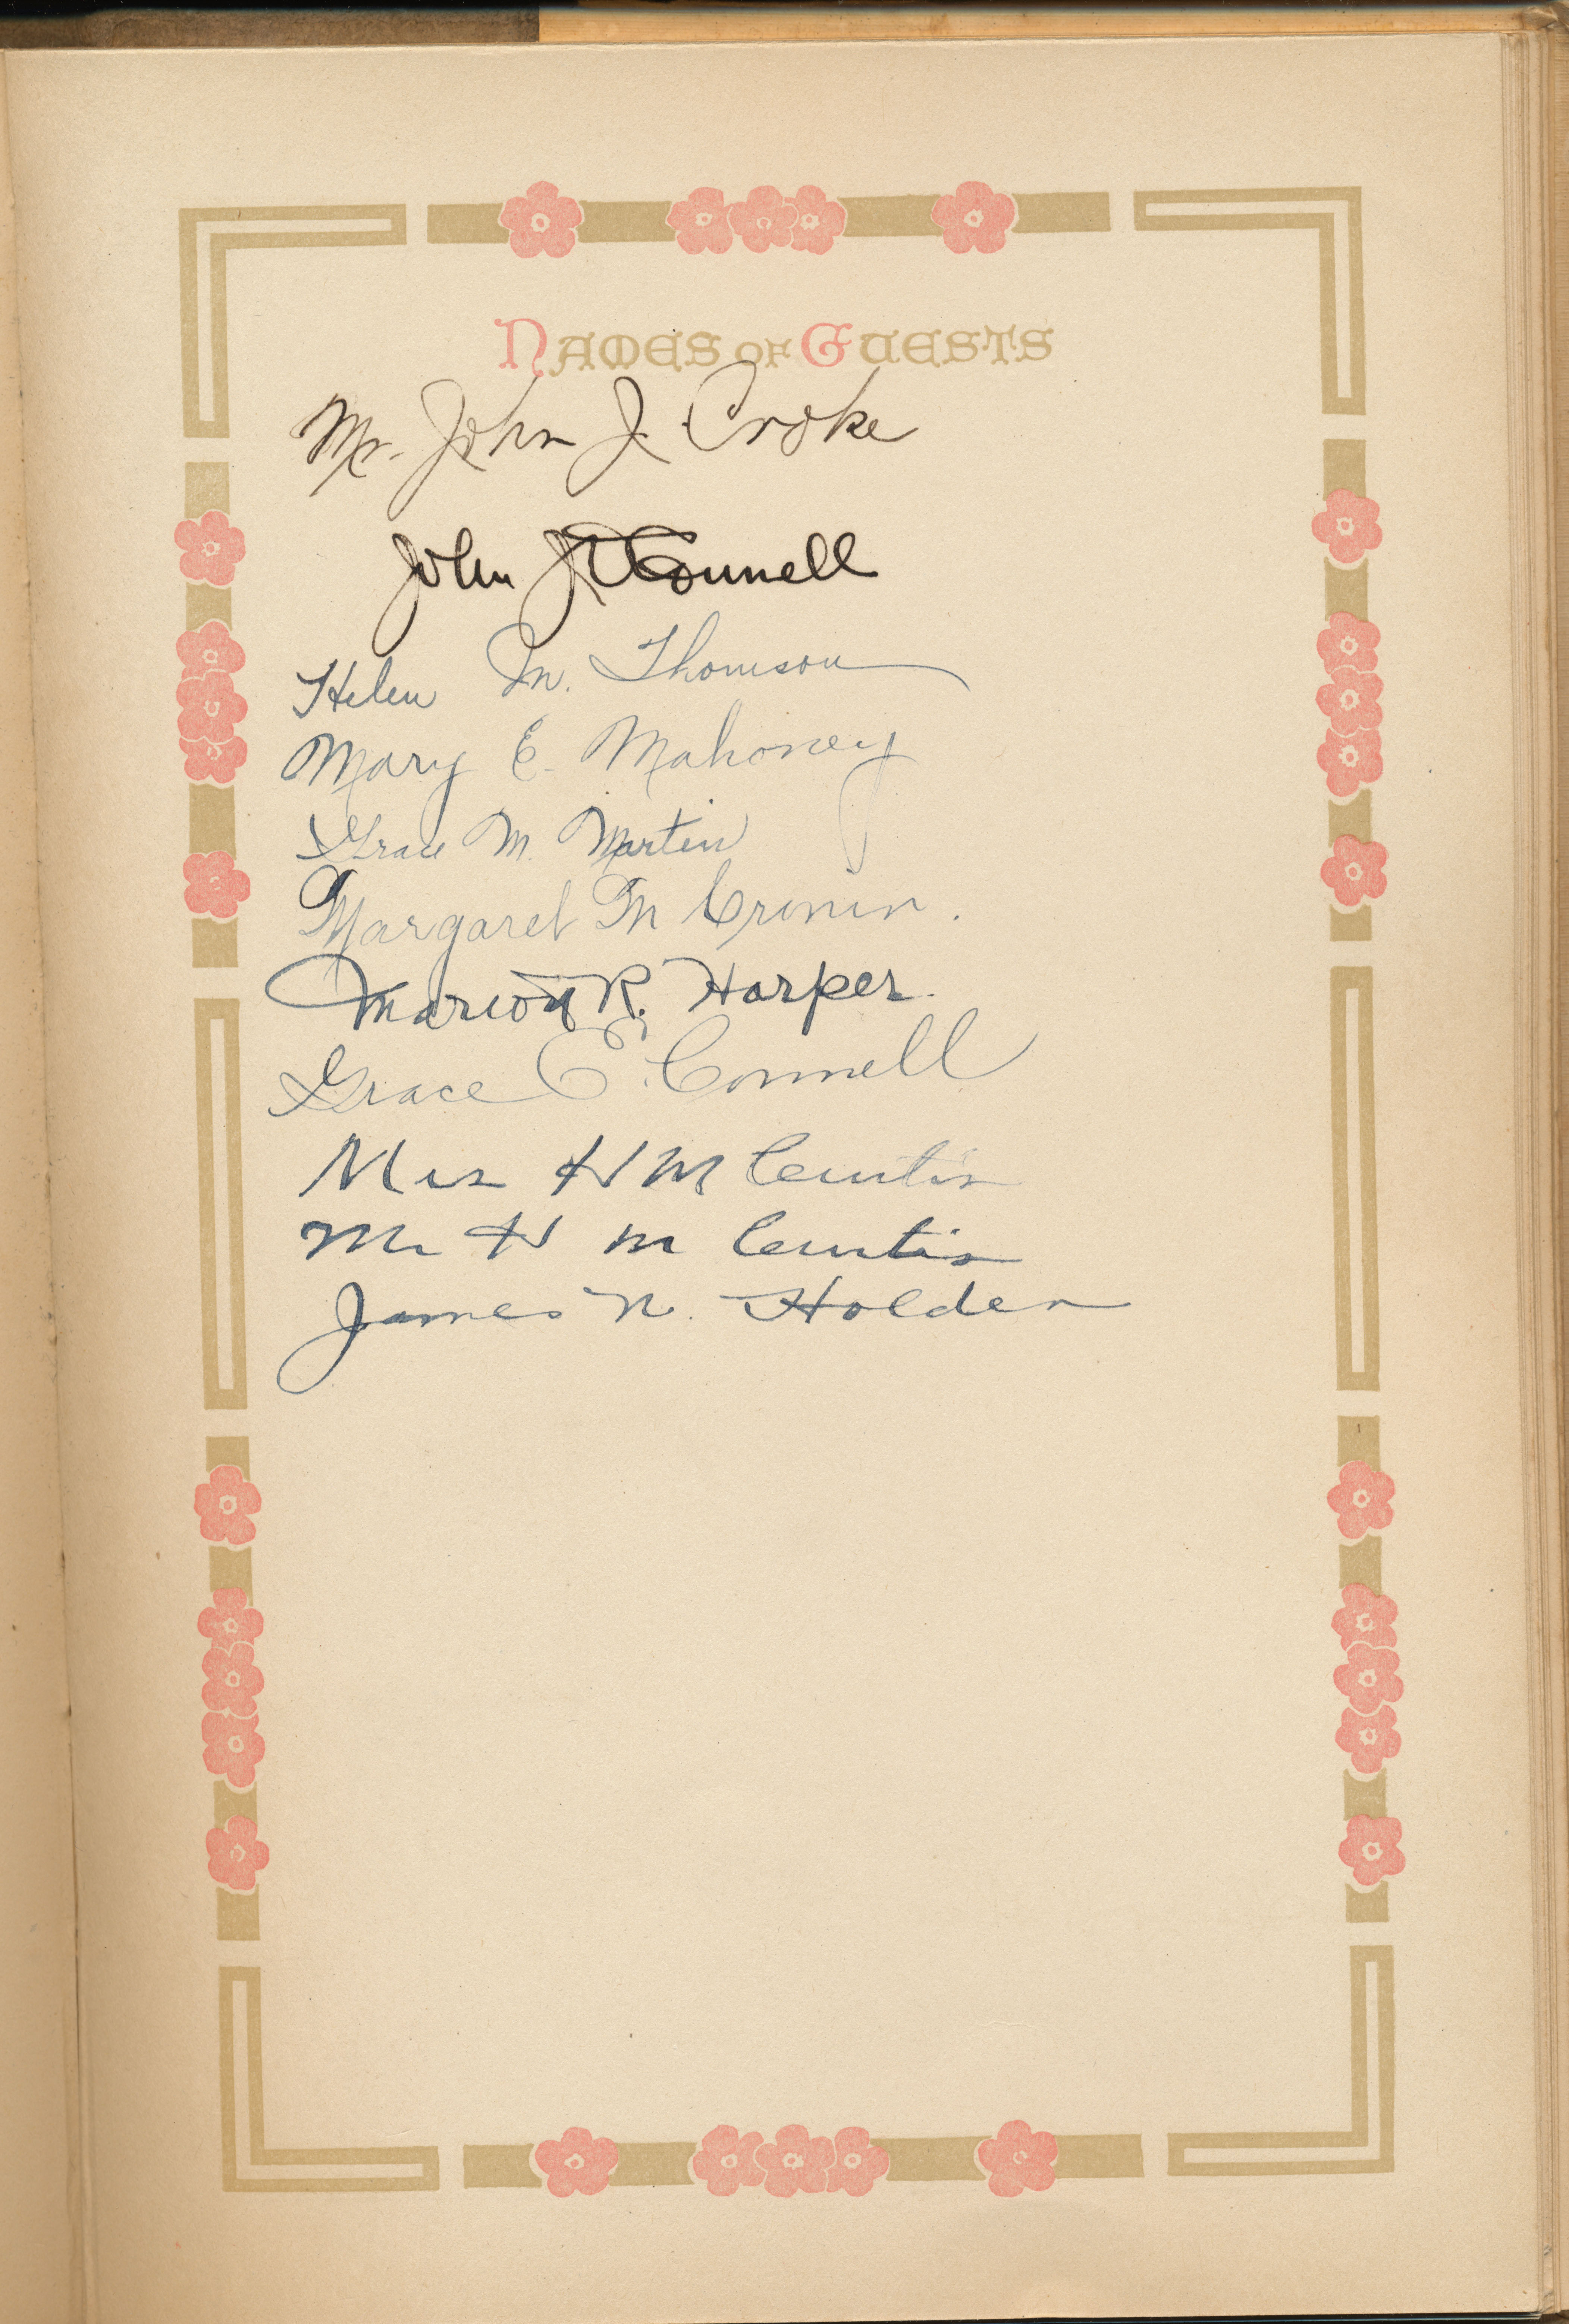 NAMES OF GUESTS
Mr. John J. Croke
John J. O'Connell
Helen M. Thomson
Mary E. Mahoney
Grace M. Martin
Margaret M Cronin.
Marion R. Harper.
Grace E. Connell
Mrs H M Curtis
Mr H M Curtis
James N. Holden